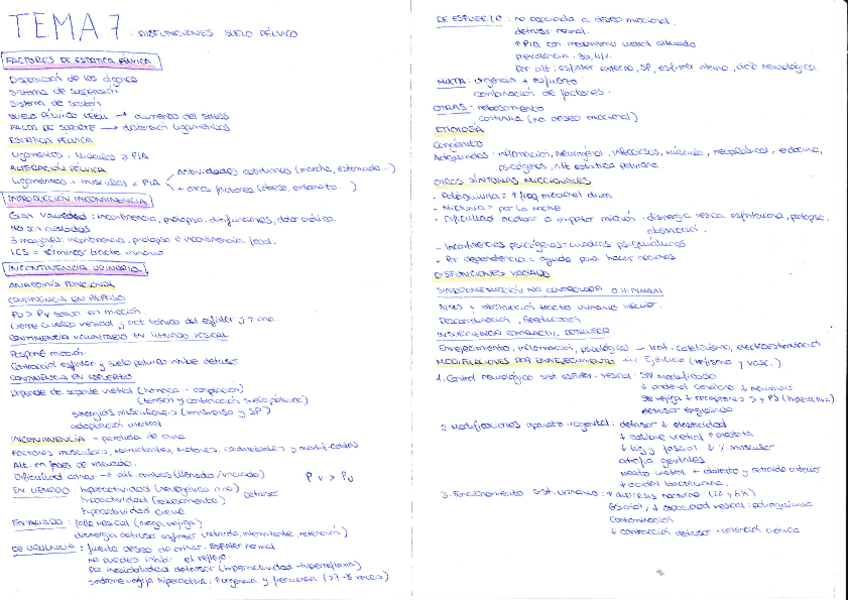 TEMA 7: DISFUNCIONES SUELO PÉLVICO
FACTORES DE ESTÁTICA PÉLVICA
Disposición de los órganos
Sistema de suspensión
Sistema de sostén
SUELO PÉLVICO DÉBIL → aumento del stress
FALTA DE SOPORTE → distensión ligamentosa
ESTÁTICA PÉLVICA
Ligamentos, músculos ≥ PIA
ALTERACIÓN PÉLVICA
Ligamentos + músculos ≤ PIA
+ actividades cotidianas (marcha, estornudo...)
+ otros factores (obeso, embarazo...)
INTRODUCCIÓN INCONTINENCIA
Gran variedad: incontinencia, prolapso, disfunciones, dolor crónico.
No son aislados
3 márgenes: incontinencia, prolapso e incontinencia fecal.
ICS = términos tracto urinario
INCONTINENCIA URINARIA
ANATOMÍA FUNCIONAL
CONTINENCIA EN REPOSO
PU > PV salvo en micción
Cierre cuello vesical y act tónica del esfínter y
CONTINENCIA VOLUNTARIA EN LLENADO VESICAL
Responde micción.
Contracción esfínter y suelo pélvico inhibe detrusor
CONTINENCIA EN ESFUERZO
Depende de soporte uretral (hamaca - compresión)
(tensión y contracción suelo pélvico)
sinergias musculares (transverso y SP)
adaptación uretral
INCONTINENCIA - pérdida de orina
Factores musculares, estructurales, motores, conductuales y modificables
Alt. en fases de vaciado.
Dificultad vaciar → alt. ambas (llenado/vaciado)
PV > PU
EN LLENADO: hiperactividad (neurogénica o no) detrusor
hipoactividad (rebosamiento)
hipoactividad cierre
EN VACIADO: fallo vesical (mega vejiga)
disinergia detrusor esfínter (retardo, intermitente, retención)
DE URGENCIA: fuerte deseo de orinar. Esfínter normal
No puedes inhibir el reflejo
Por inestabilidad detrusor (hiperactividad - hiperreflexia)
síndrome vejiga hiperactiva: ↑ urgencia y frecuencia (>7-8 veces)
DE ESFUERZO: no asociada a deseo miccional.
detrusor normal.
↑ PIA con mecanismo uretral alterado
prevalencia
Por alt: esfínter externo, SP, esfínter interno, daño neurológico.
MIXTA: urgencia + esfuerzo
combinación de factores.
OTRAS: rebosamiento
continua (no deseo miccional)
ETIOLOGÍA
Congénita
Adquiridas: inflamación, neurógena, infecciosas, músculo, neoplásicas, endocrino,
psicógenas, alt estática pelviana.
OTROS SÍNTOMAS MICCIONALES
- Polaquiuria: ↑ frq miccional diurna
- Nicturia = por la noche
- Dificultad acabar o empezar micción: disinergia vesico esfinteriana, prolapso,
obstrucción.
- Incontinencias psicógenas - cuadros psiquiátricos
- Por dependencia - ayuda para hacer acciones
DISFUNCIONES VACIADO
SÍNDROME MICCIÓN NO CONTROLADA O HINMAN
Niños y obstrucción tracto urinario inferior.
Descoordinación, Reeducación
INSUFICIENCIA CONTRÁCTIL DETRUSOR
Envejecimiento, inflamación, psicológico - trat. cateterismo, electroestimulación
MODIFICACIONES POR ENVEJECIMIENTO ++↓ Ejercicio (reflejos y vasc.)
1. Control neurológico sist esfínter-vesical: SN modificado
↓ control cerebro ↓ neuronas
SN vejiga ↓ receptores
detrusor
2. Modificaciones aparato urogenital: detrusor ↓ elasticidad
↓ cierre uretral ↑ próstata
↓ lig y fascial ↓ % muscular
atrofia genitales
meato uretral + abierto y retraído anterior
↓ acidez bacteriana.
3. Funcionamiento sist. urinario: ↑ diuresis nocturna
Esencial, ↓ capacidad vesical: polaquiuria
Contaminación
↓ contracción detrusor - retención crónica